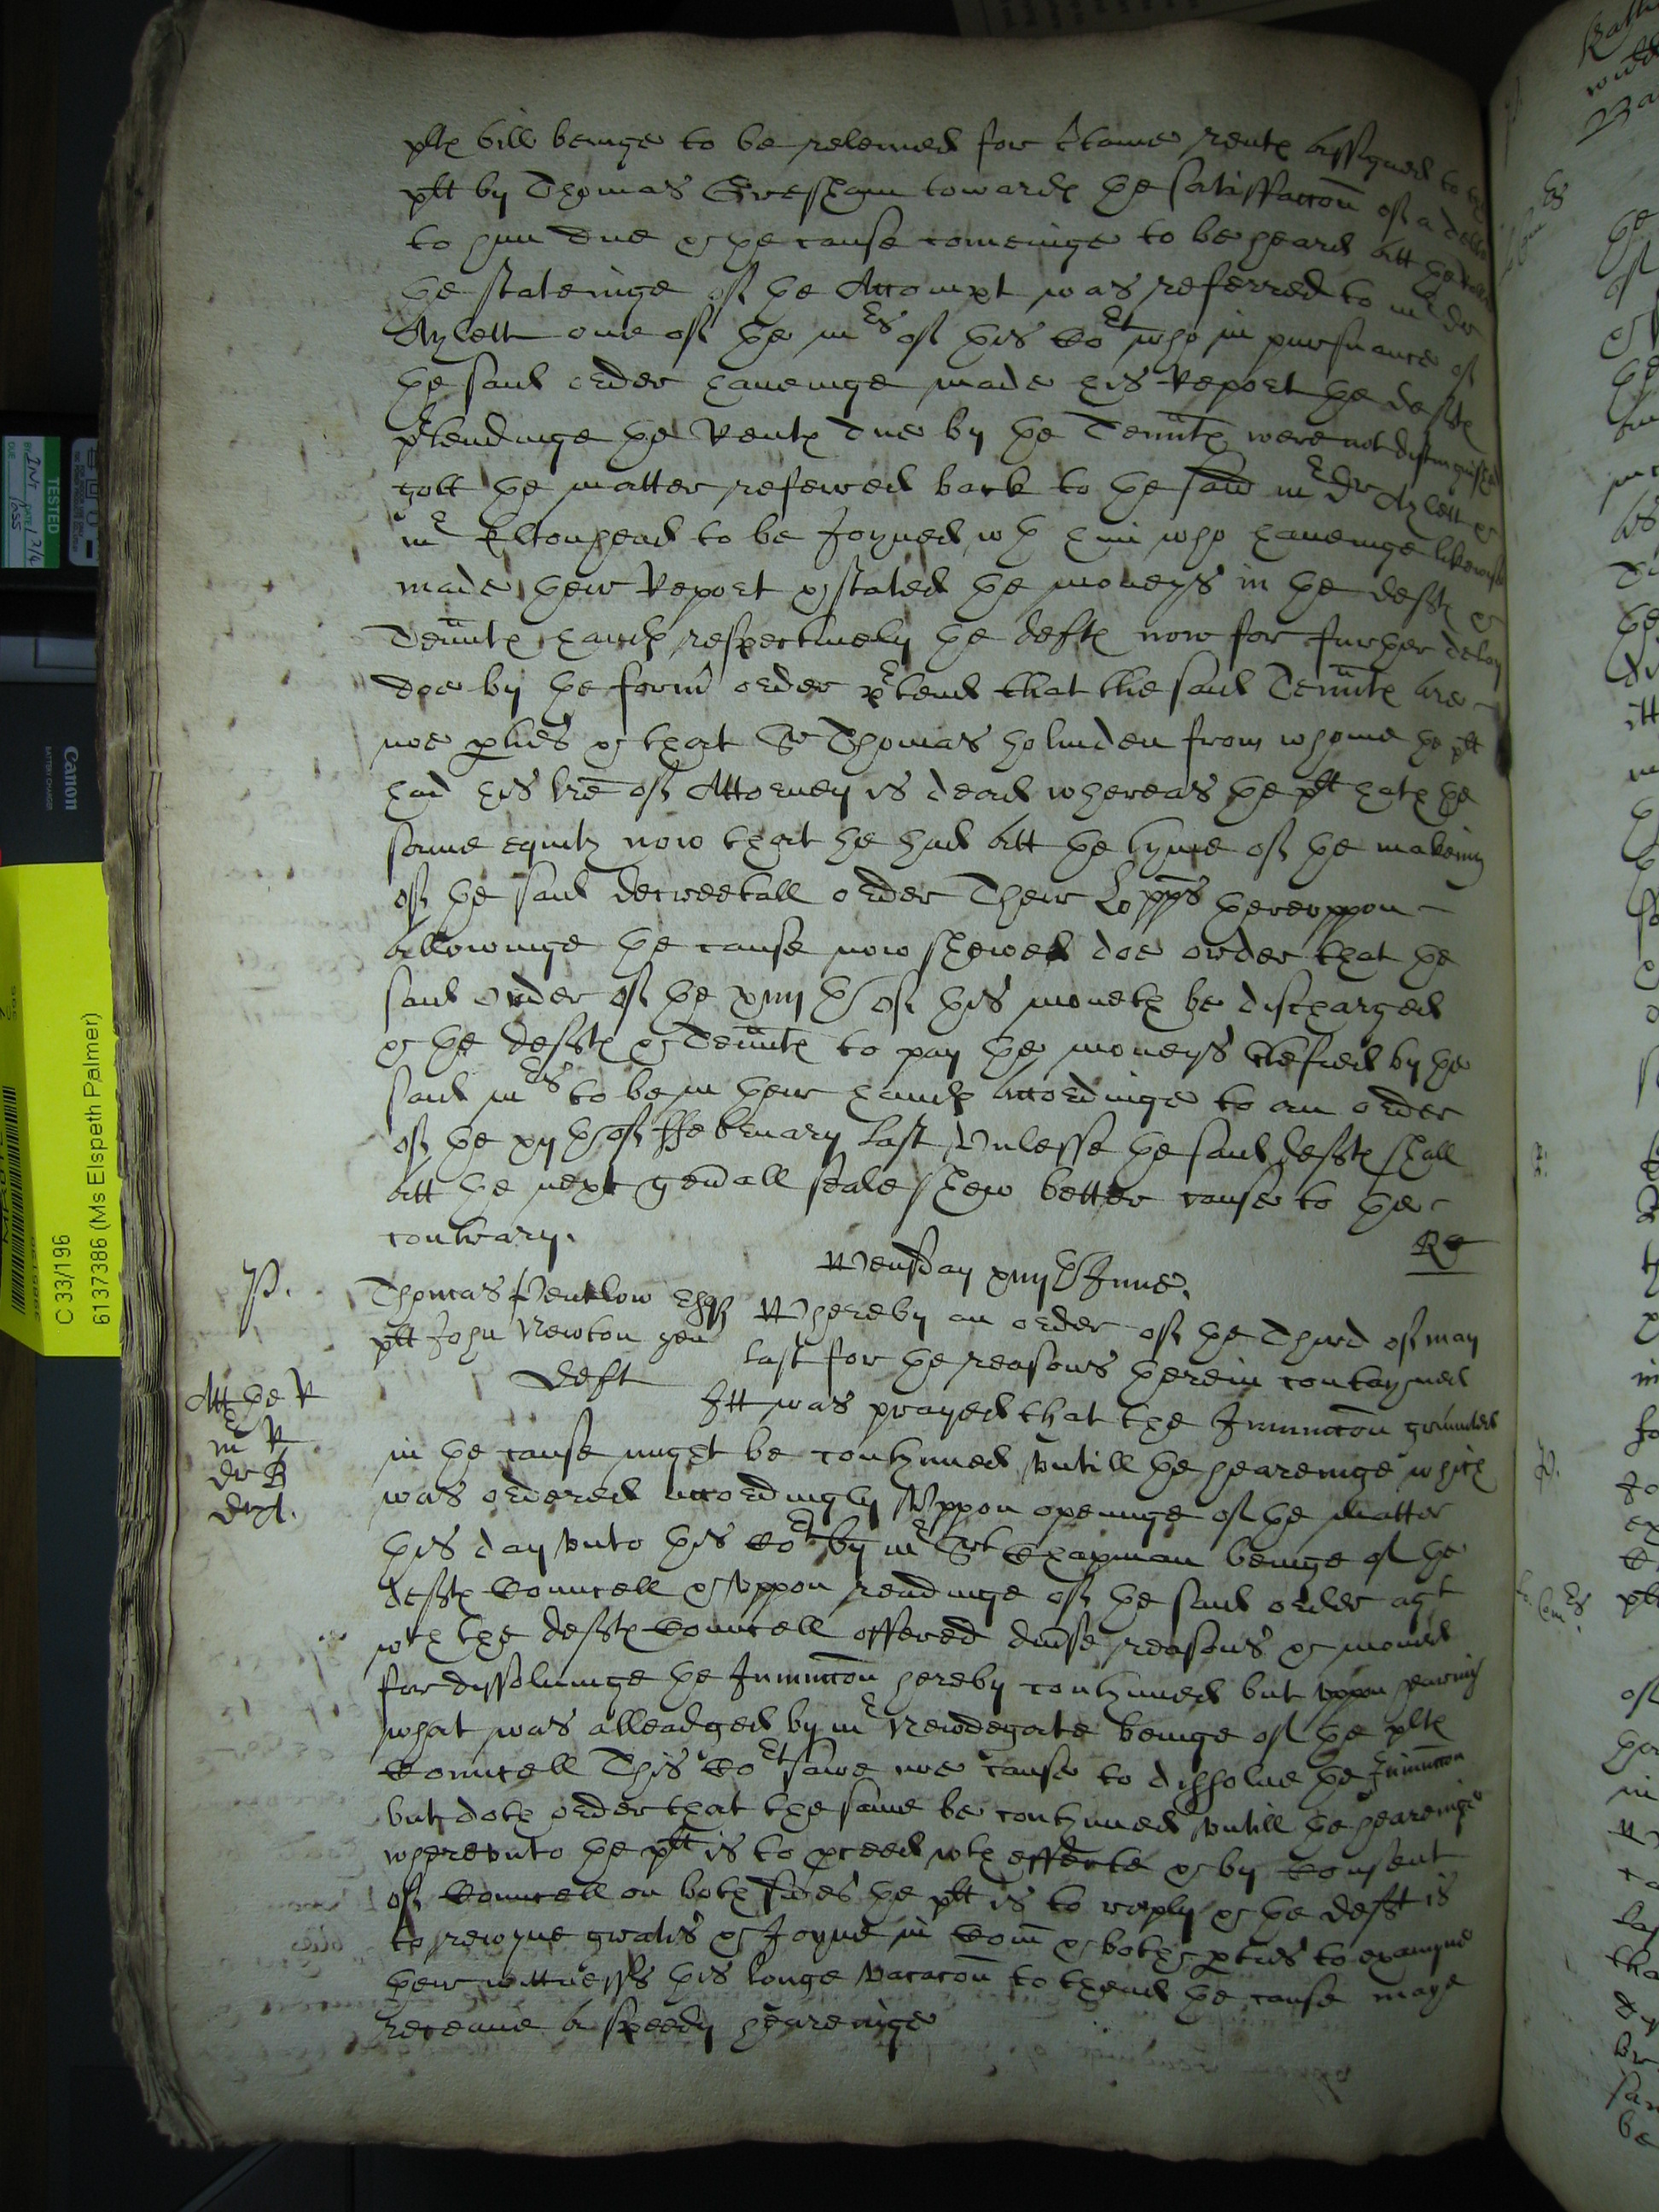 plts bill beinge to be releived for Cteine rents assigned to the
plt by Thomas Gresham towards the satisffaccon of a debt
to him due & the cause comeinge to be heard att the Rolls
the stateinge of the Accompt was referred to mr dr
Aylett one of the mrs of this Cort who in pursuance of
the said order haveinge made his Report the defts
prtendinge the Rents due by the Tennts were not distinguished
gott the matter referred back to the said mr dr Aylett &
mr Eltonhead to be Joyned wth him who haveinge likewise
made their Report & stated the moneys in the defts &
Tennts hands respectively the defts now for further delay
doe by the form order prtend that the said Tennts are
noe pties & that Sr Thomas holinden from whome the plt
had his lre of Attorney is dead whereas the plt hath the
same equity now that he had att the tyme of the makeing
of the said decreetall order Their Lopps thereuppon
allowinge the cause now shewed doe order that the
said order of the xiiij th of this moneth be discharged
& the defts & Tennts to pay the moneys Ctefied by the
said mrs to be in their hands accordinge to an order
of the xij th of ffebruary last Unlesse the said defts shall
att the next genall seale shew better cause to the
contrary.
Re
Wensday xiiij th June.
P.
Thomas Pentlow Esqr
plt John Newton gen
deft
Whereby an order of the Third of may
last for the reasons therein contayned
Itt was prayed that the Iniunccon graunted
Att the R
mr R
dr B
dr A.
in the cause might be contynued untill the heareinge which
was ordered accordingly Uppon openinge of the matter
this day unto this Cort by mr Srt Chapman beinge of the
defts Councell & uppon readinge of the said order agt
wch the defts Councell offered divse reasons & moved
for dissolvinge the Iniunccon thereby contynued but uppon hearing
what was alleadged by mr Newdegate beinge of the plts
Councell This Cort sawe noe cause to dissolve the Iniunccon
but doth order that the same be contynued untill the heareinge
whereunto the plt is to pceed wth effecte & by Consent
of Councell on both sides the plt is to reply & the deft is
to reioyne gratis & Joyne in Com & both pties to examyne
their wittnesses this longe vacacon to thend the cause maye
receave a speedy heareinge
TESTED
Canon
BATTERY CHARGER
C 33/196
6137386 (Ms Elspeth Palmer)